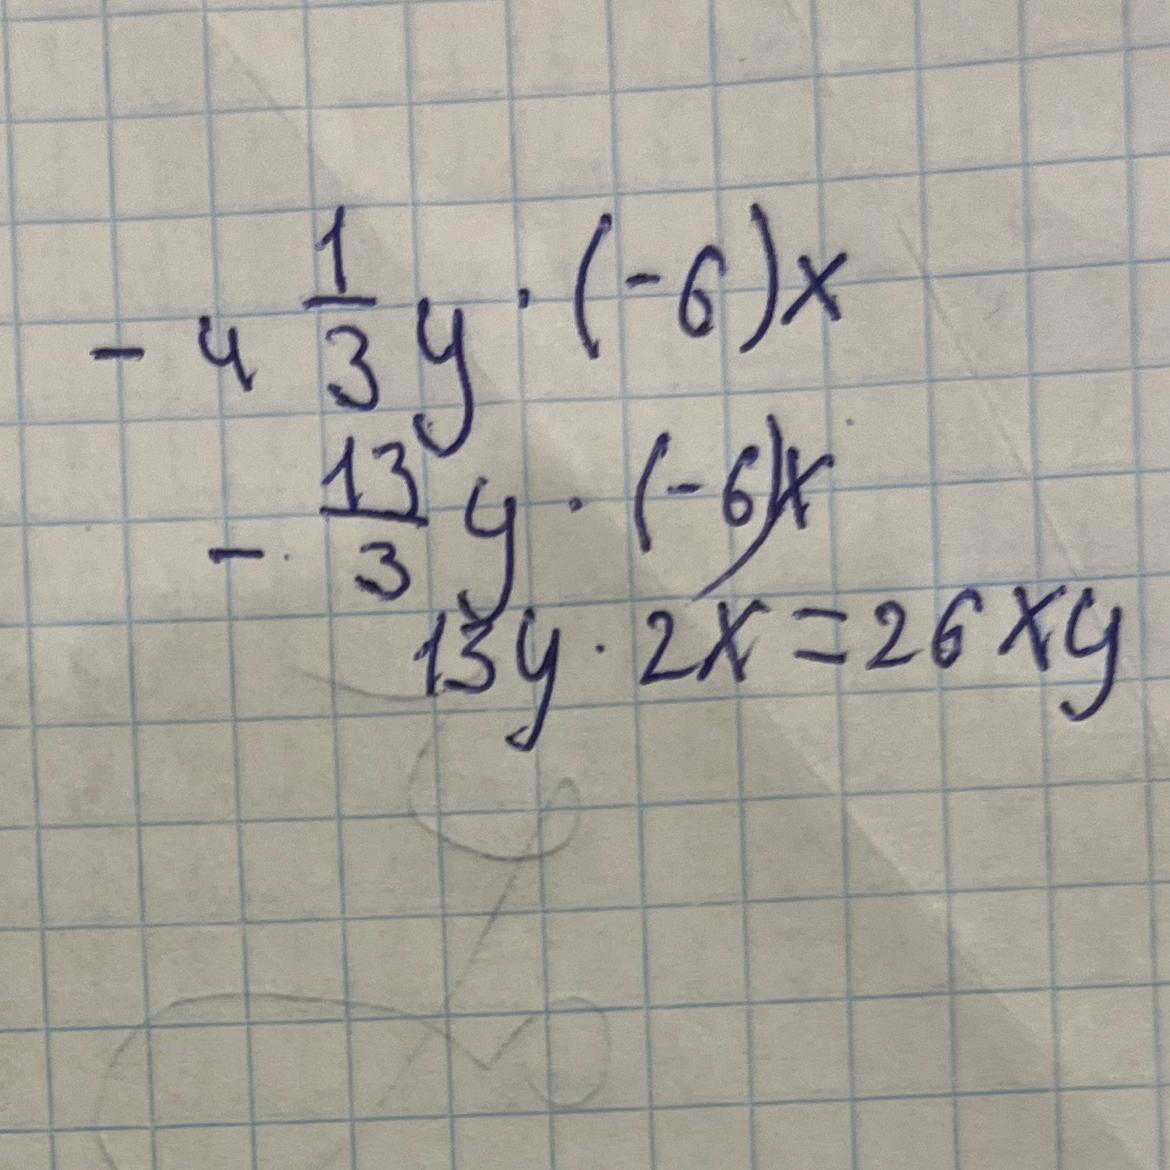 - 4 1/3 y · (-6)x
- 13/3 y · (-6)x
13y · 2x = 26xy